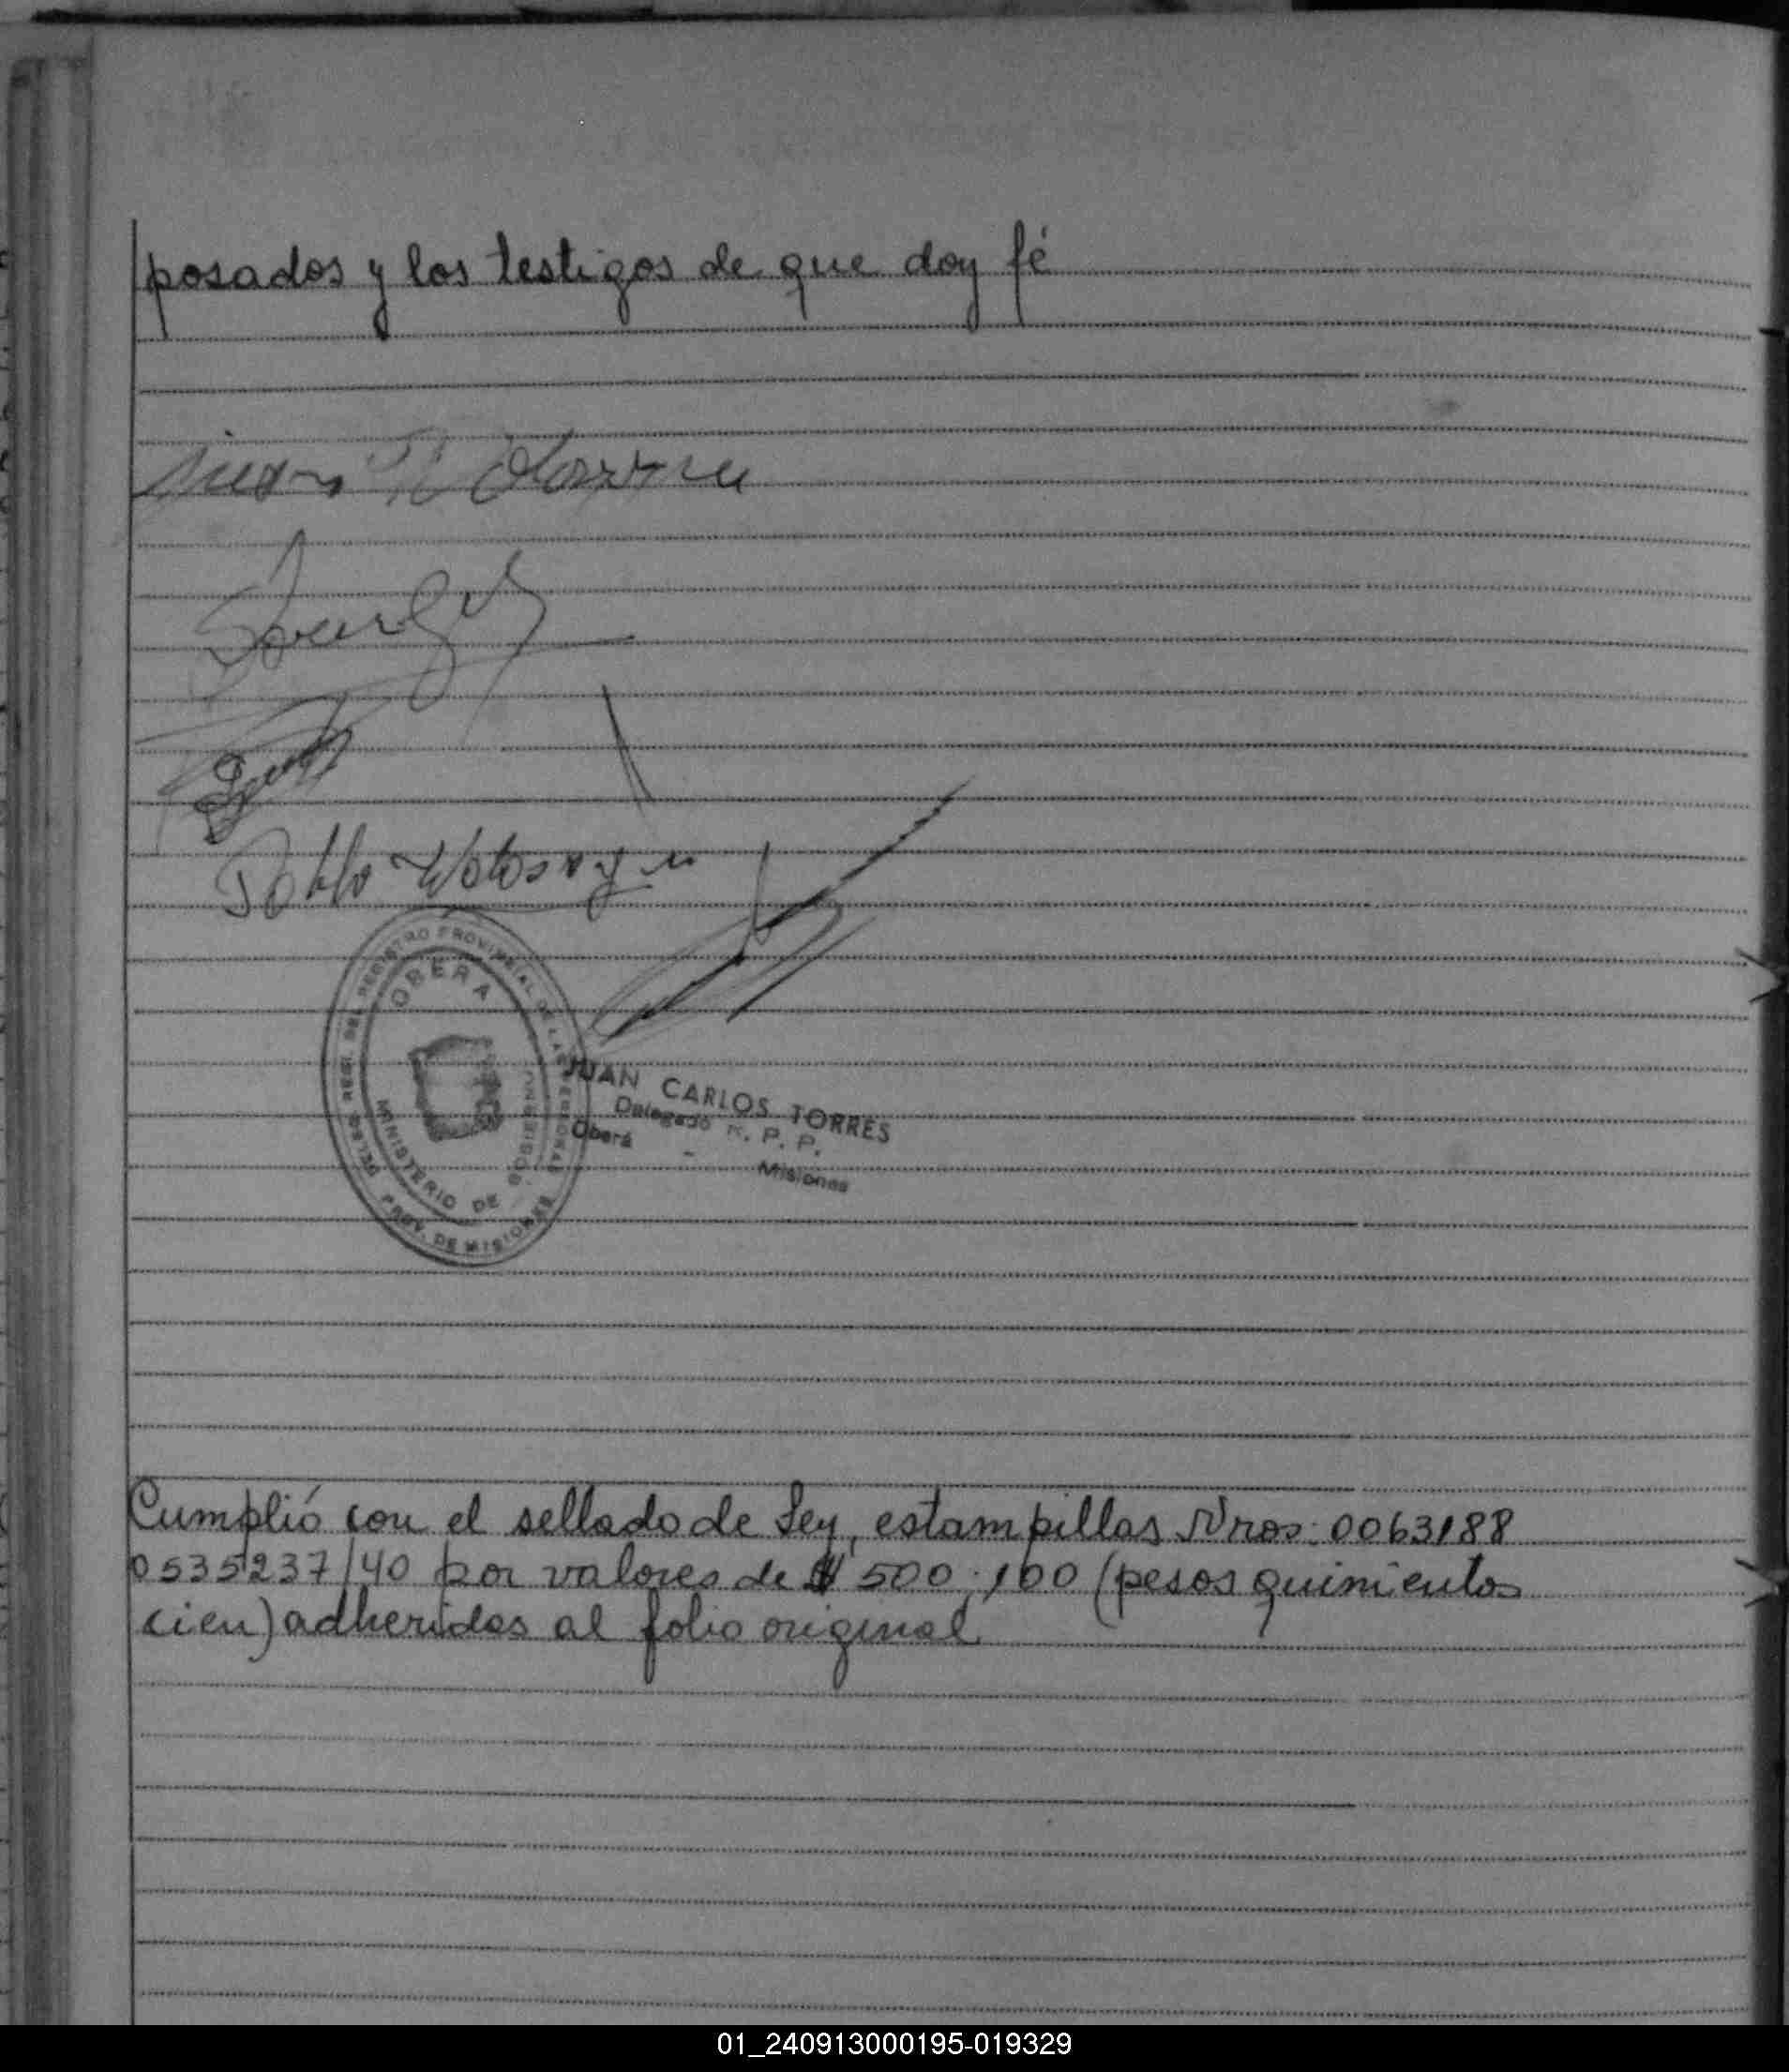 posados y los testigos de que doy fé
Pablo
DELEG. REG. DEL REGISTRO PROVINCIAL DE LAS PERSONAS
OBERA
MINISTERIO DE GOBIERNO
PROV. DE MISIONES
JUAN CARLOS TORRES
Delegado R. P. P.
Oberá - Misiones
Cumplió con el sellado de Ley, estampillas Nros: 0063188
0535237/40 por valores de $ 500; 100 (pesos quinientos
cien) adheridas al folio original
01_240913000195-019329